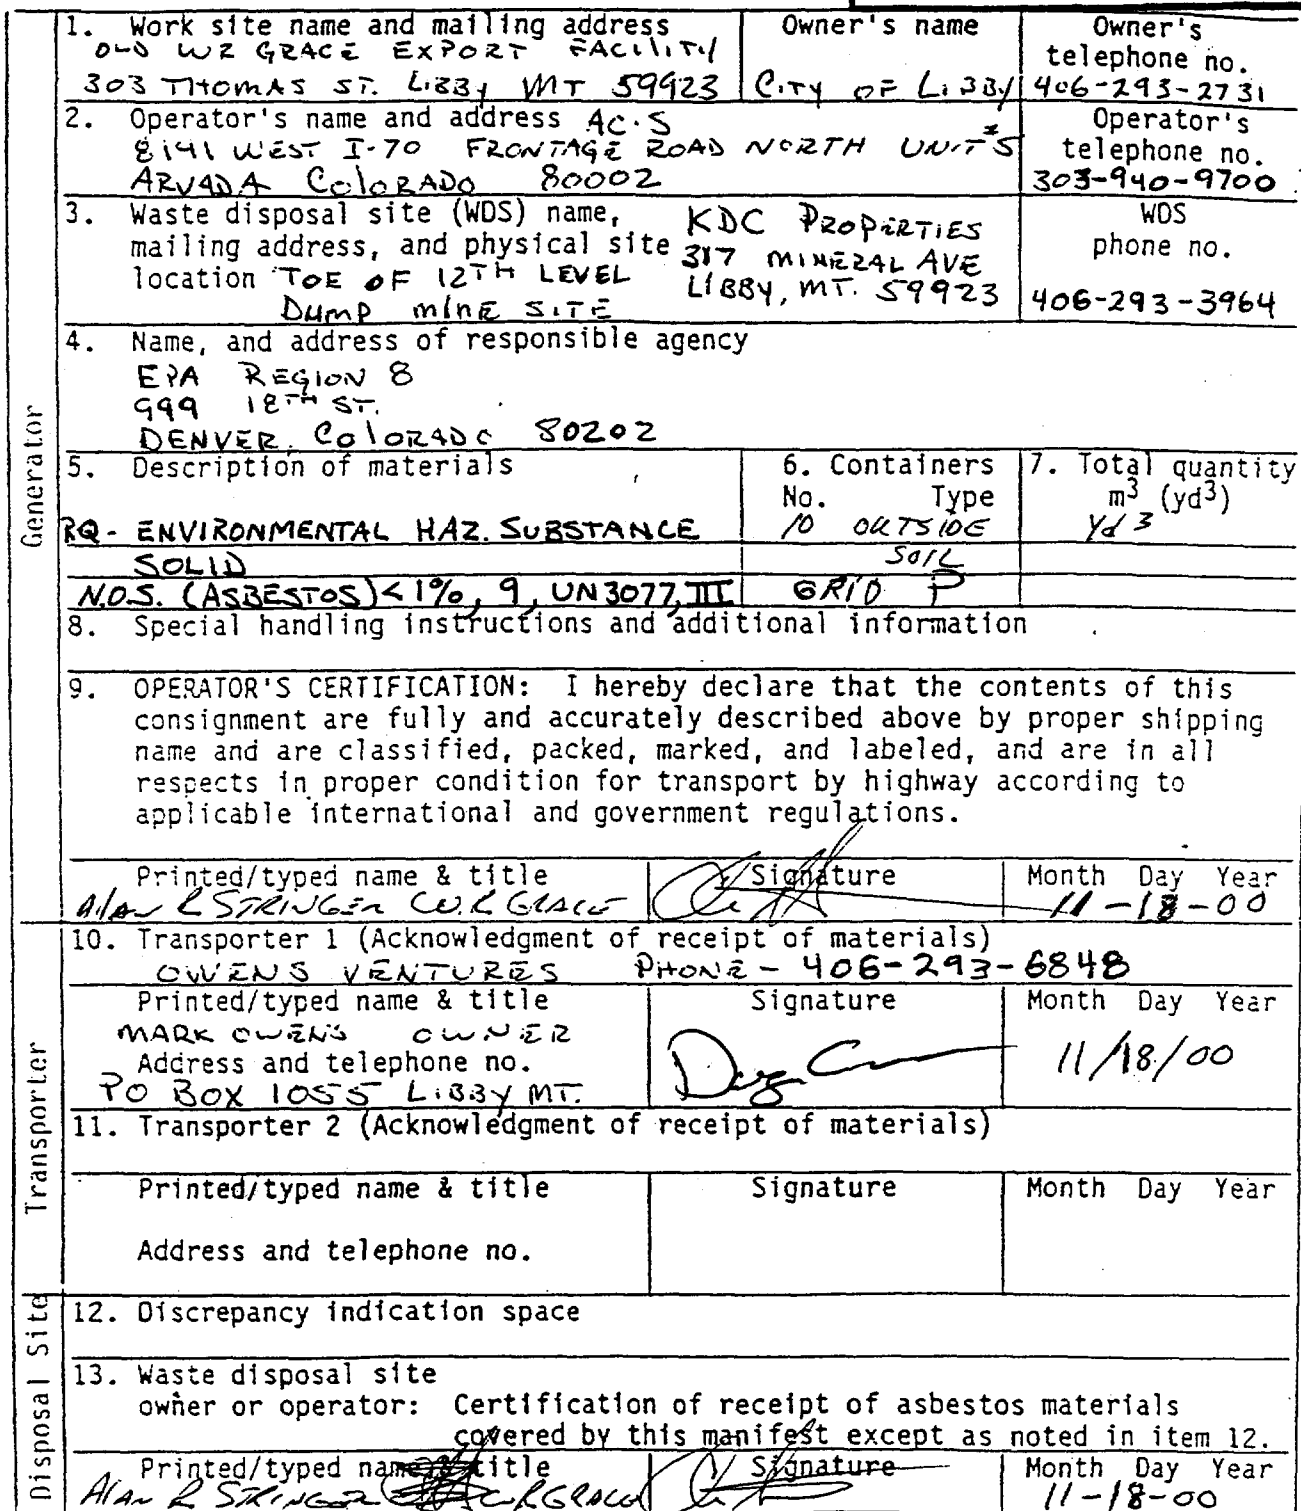 1. Work site name and mailing address
OLD WR GRACE EXPORT FACILITY
303 THOMAS ST. LIBBY MT 59923
Owner's name
CITY OF LIBBY
Owner's
telephone no.
406-293-2731
2. Operator's name and address AC.S
8141 WEST I-70 FRONTAGE ROAD NORTH UNIT #5
ARVADA COLORADO 80002
Operator's
telephone no.
303-940-9700
3. Waste disposal site (WDS) name,
mailing address, and physical site
location TOE OF 12TH LEVEL
DUMP MINE SITE
KDC PROPERTIES
317 MINERAL AVE
LIBBY, MT. 59923
WDS
phone no.
406-293-3964
4. Name, and address of responsible agency
EPA REGION 8
999 18TH ST.
DENVER, COLORADO 80202
Generator
5. Description of materials
6. Containers
No. Type
7. Total quantity
m3 (yd3)
RQ - ENVIRONMENTAL HAZ. SUBSTANCE
10 OUTSIDE
Yd3
SOLID
SOIL
N.O.S. (ASBESTOS) < 1%, 9, UN3077, III
GRID P
8. Special handling instructions and additional information
9. OPERATOR'S CERTIFICATION: I hereby declare that the contents of this
consignment are fully and accurately described above by proper shipping
name and are classified, packed, marked, and labeled, and are in all
respects in proper condition for transport by highway according to
applicable international and government regulations.
Printed/typed name & title
Alan R STRINGER W.R GRACE
Signature
Month Day Year
11-18-00
Transporter
10. Transporter 1 (Acknowledgment of receipt of materials)
OWENS VENTURES PHONE - 406-293-6848
Printed/typed name & title
MARK OWENS OWNER
Address and telephone no.
PO BOX 1055 LIBBY MT.
Signature
Month Day Year
11/18/00
11. Transporter 2 (Acknowledgment of receipt of materials)
Printed/typed name & title
Signature
Month Day Year
Address and telephone no.
Disposal Site
12. Discrepancy indication space
13. Waste disposal site
owner or operator: Certification of receipt of asbestos materials
covered by this manifest except as noted in item 12.
Printed/typed name & title
Alan R STRINGER W.R GRACE
Signature
Month Day Year
11-18-00